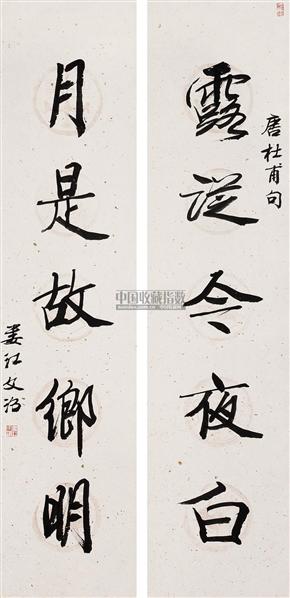 唐杜甫句
露從今夜白
月是故鄉明
婁江文治
中国收藏指数